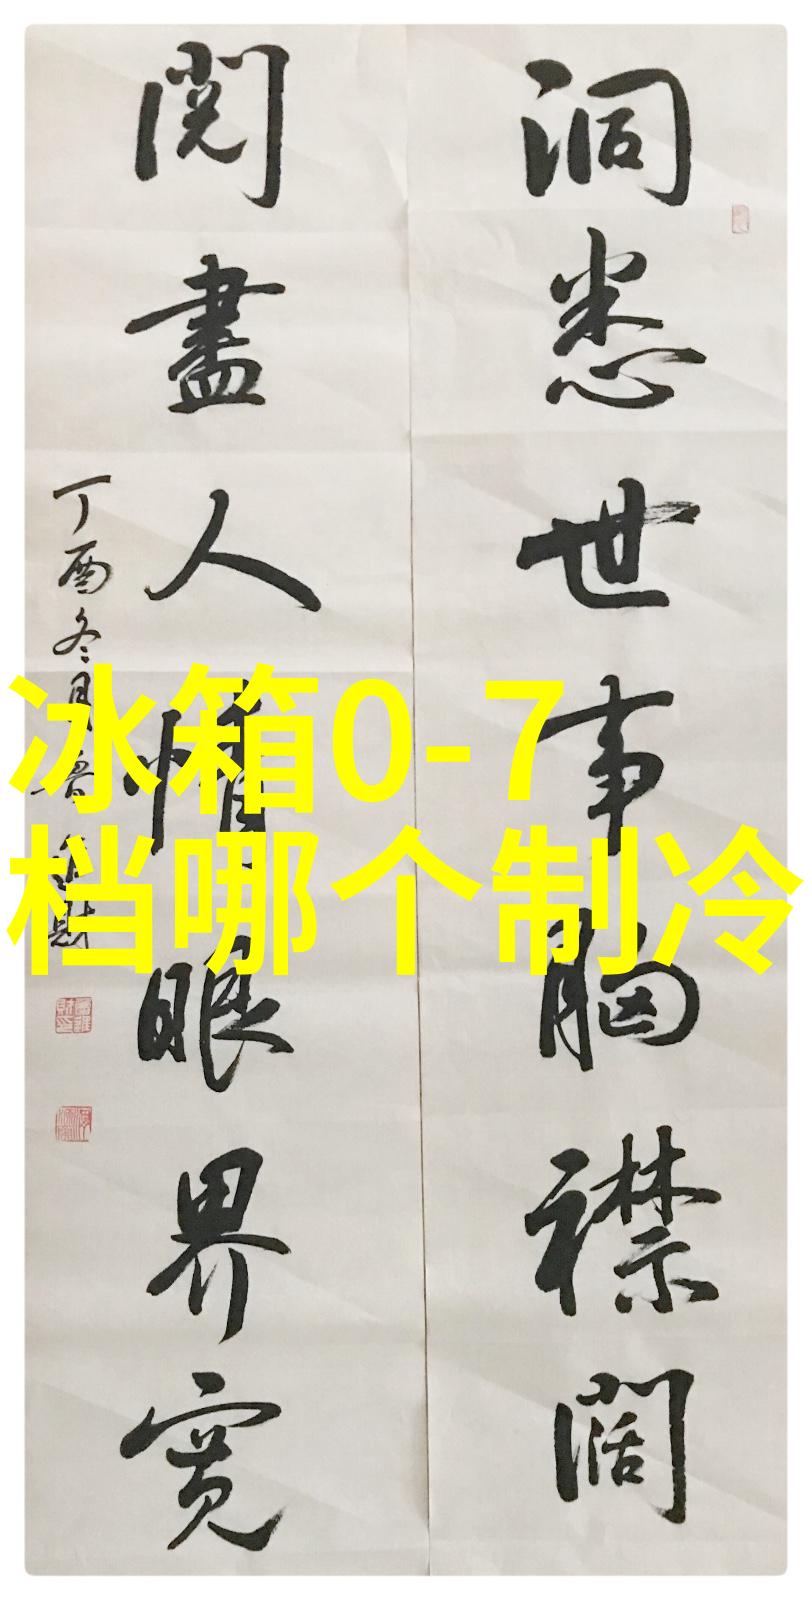 洞悉世事胸襟闊
閱盡人情眼界寬
丁酉冬月
冰箱0-7
档哪个制冷